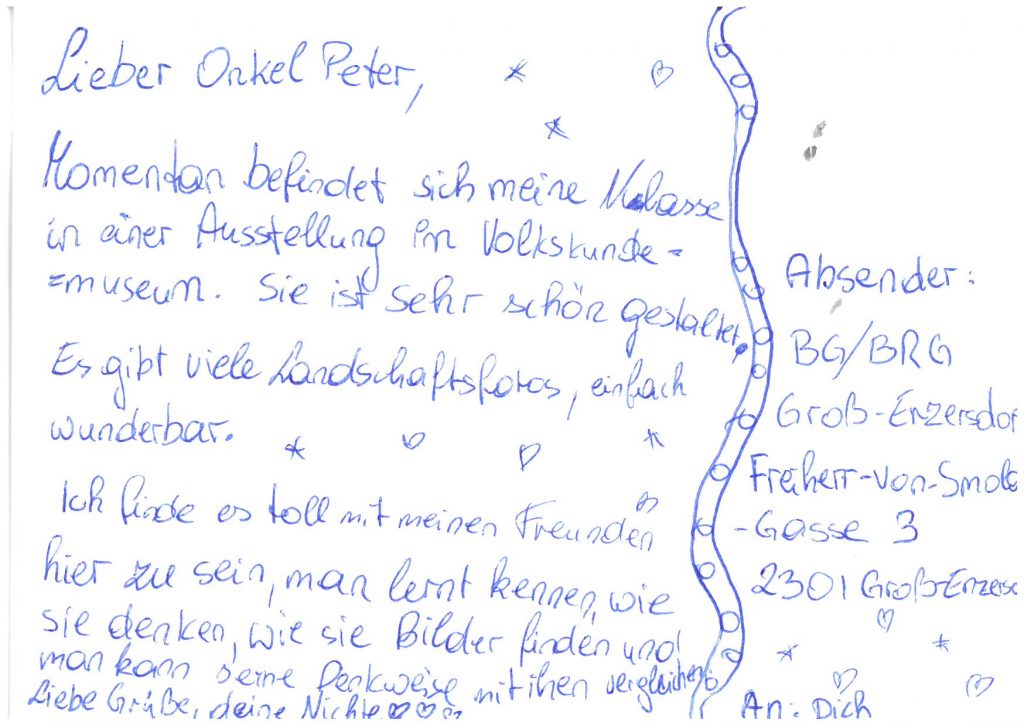 Lieber Onkel Peter,
Momentan befindet sich meine Klasse
in einer Ausstellung im Volkskunde=
=museum. Sie ist sehr schön gestaltet.
Es gibt viele Landschaftsfotos, einfach
wunderbar.
Ich finde es toll mit meinen Freunden
hier zu sein, man lernt kennen, wie
sie denken, wie sie Bilder finden und
man kann seine Denkweise mit ihen vergleichen.
Liebe Grüße, deine Nichte
Absender:
BG/BRG
Groß-Enzersdor
Freiherr-von-Smola
-Gasse 3
2301 Groß-Enzers
An: Dich